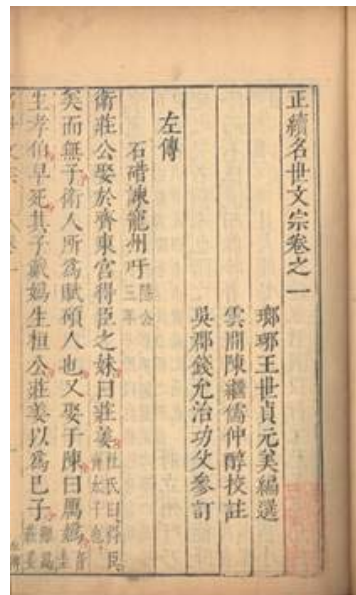 正續名世文宗卷之一
瑯琊王世貞元美編選
雲間陳繼儒仲醇校註
吳郡錢允治功父參訂
左傳
石碏諫寵州吁 隱公三年
衛莊公娶於齊東宮得臣之妹曰莊姜
矣而無子衛人所為賦碩人也又娶于陳曰厲媯
生孝伯早死其子戴媯生桓公莊姜以為已子